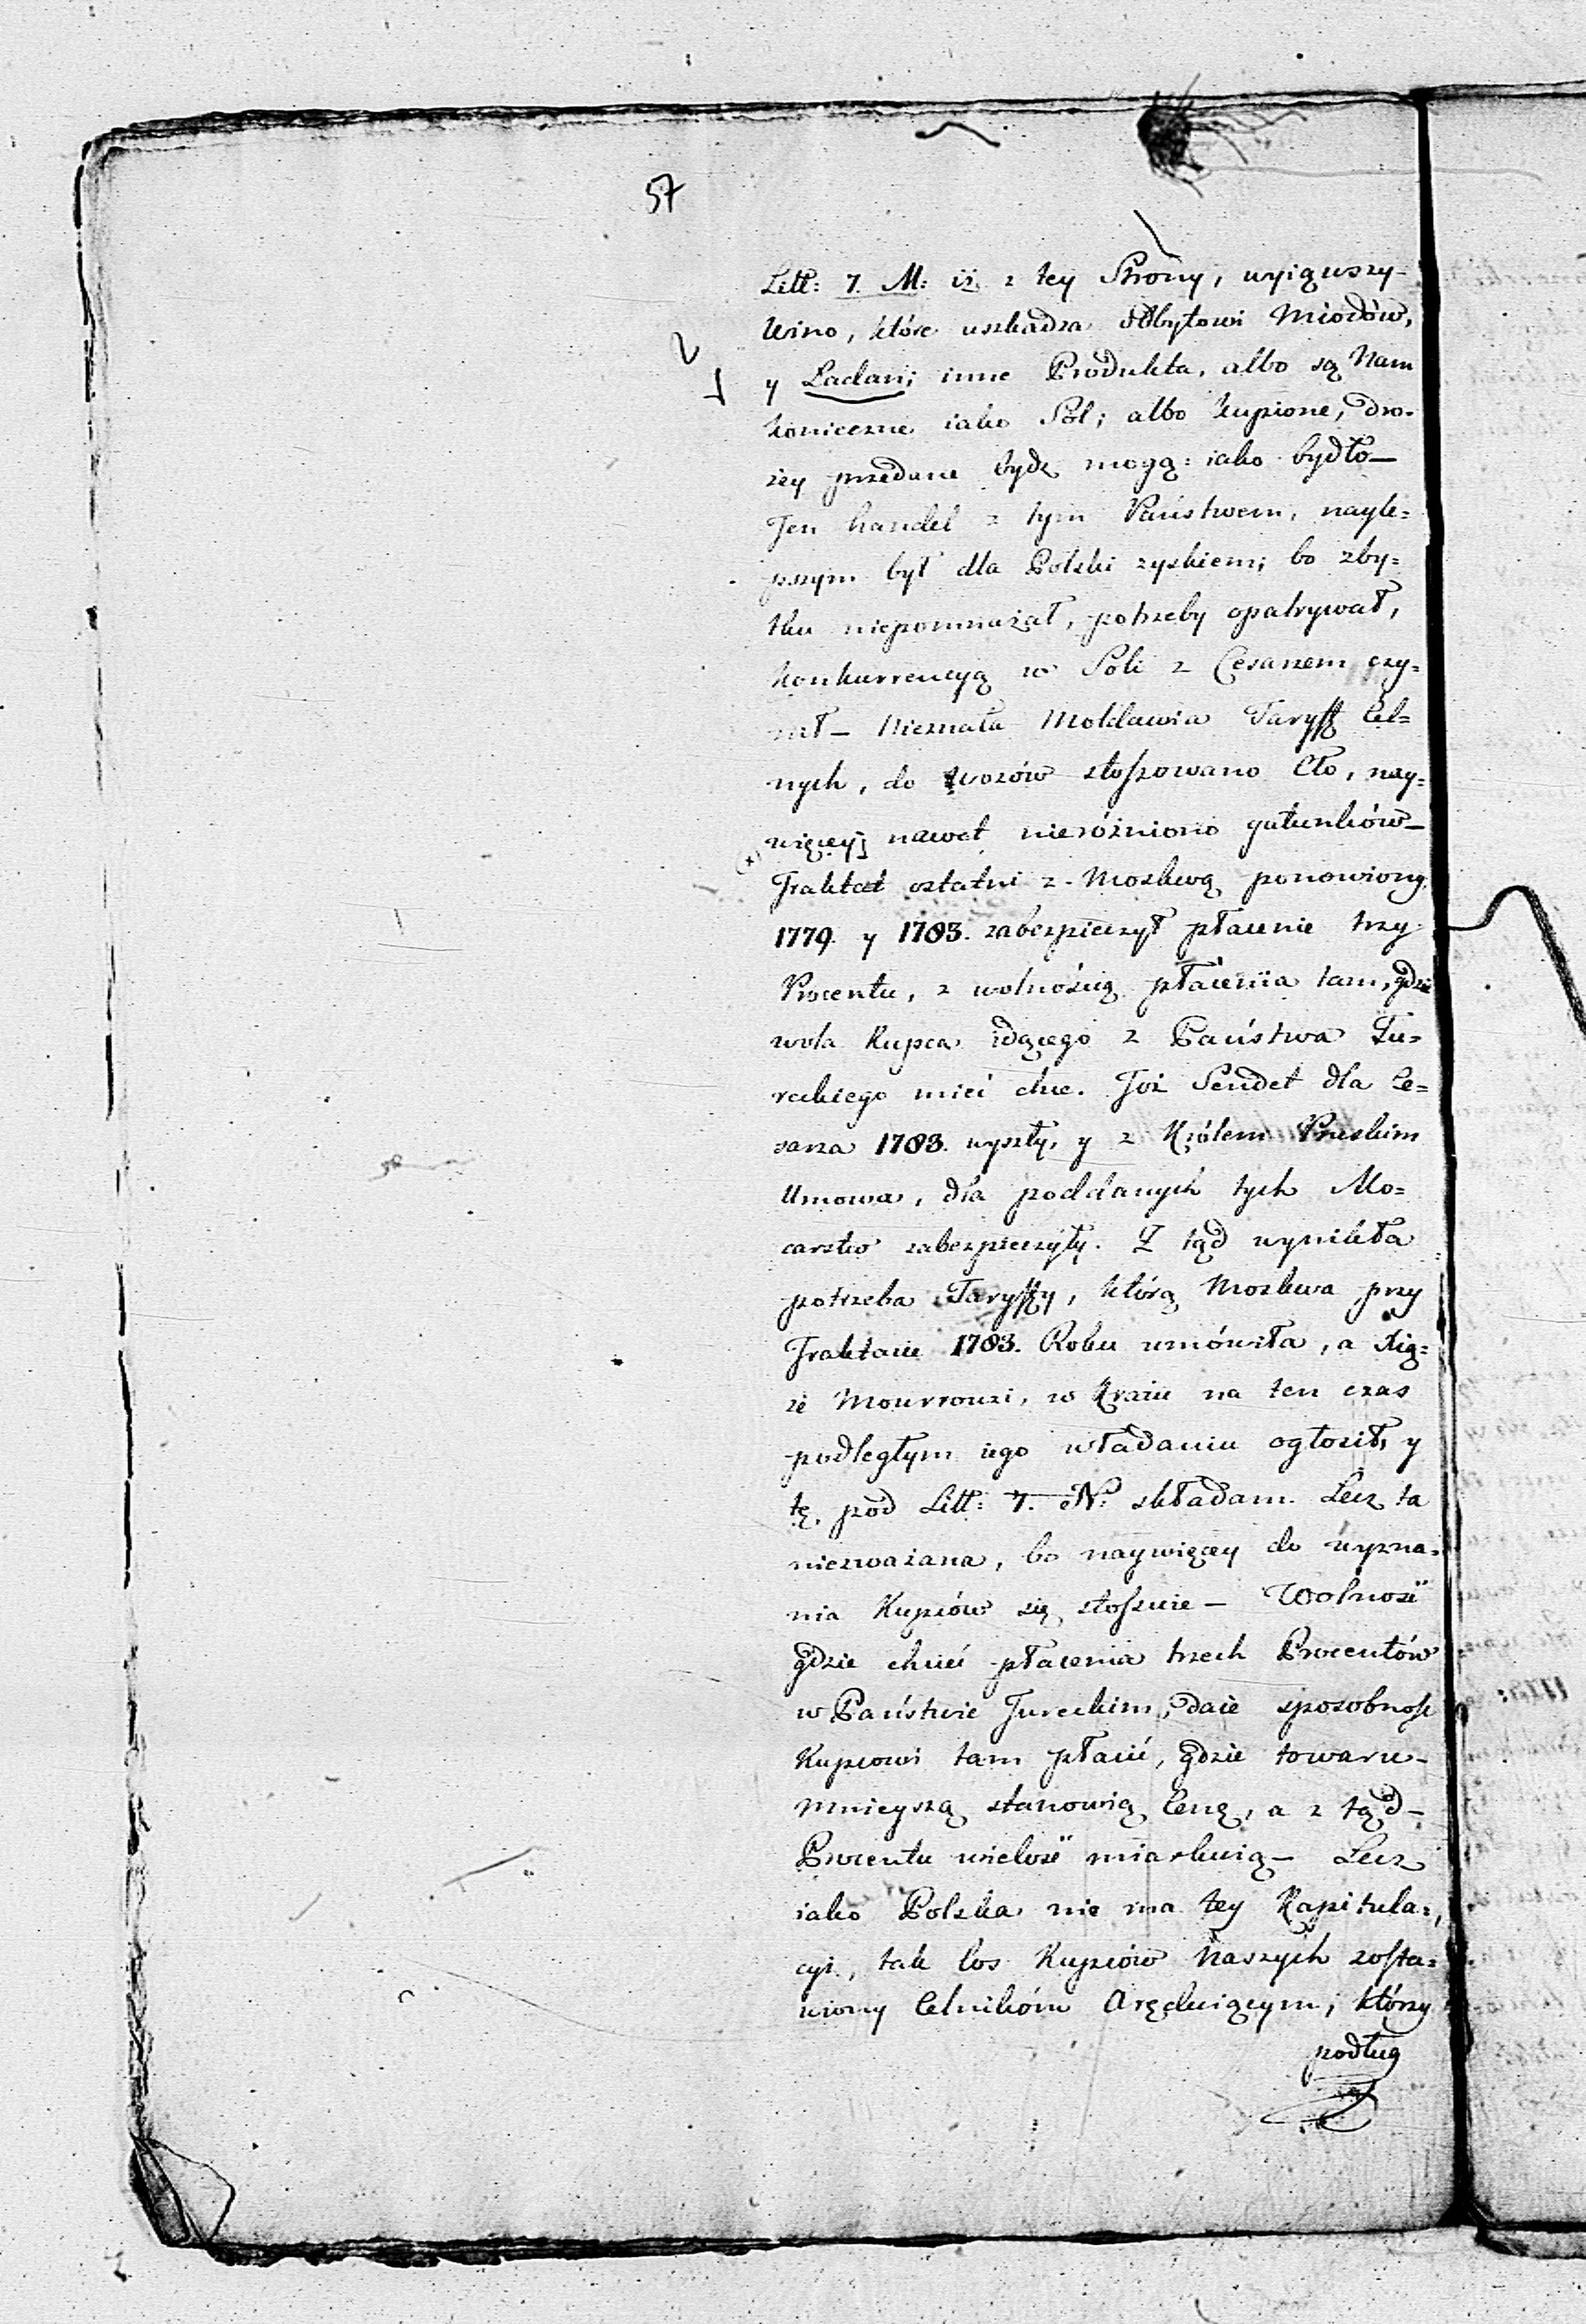 57
Litt: 7. M: iż z tey Strony, wyiąwszy-
Wino, które uszkadza odbytowi Miodów,
y Ladan; inne Produkta, albo są Nam
konieczne iako Sól; albo kupione, dro-
żey przedane bydź mogą: iako bydło_
Ten handel z tym Państwem, nayle=
pszym był dla Polski zyskiem; bo zby=
tku niepomnażał, potrzeby opatrywał,
konkurrencyą w Soli z Cesarzem czy=
nił_ Nieznała Moldawia Taryff Cel=
nych, do wozów stoſzowano Cło, nay=
więcey nawet nieróżniono gatunków_
Traktat ostatni z Moskwą ponowiony
1779. y 1783. zabezpieczył płacenie trzy
Procentu, z wolnością płacenia tam, gdzie
wola Kupca idącego z Państwa Tu=
reckiego mieć chce. Toż Sendet dla Ce=
sarza 1783. wyszły, y z Królem Pruskim
Umowa, dla poddanych tych Mo=
carstw zabezpieczyły. Z tąd wynikła
potrzeba Taryffy, którą Moskwa przy
Traktacie 1783. Roku umówiła, a Xią=
że Mourrouzi, w Kraiu na ten czas
podległym iego władaniu ogłosił, y
tę, pod Litt: 7. N: składam. Lecz ta
nieuważana, bo naywięcey do uzna=
nia Kupców się stoſzuie_ Wolność
gdzie chcieć płacenia trzech Procentów
w Państwie Tureckim, daie sposobnoſć
Kupcowi tam płacić, gdzie towaru-
mnieyszą stanowią Cenę, a z tąd-
Procentu wielość miarkuią_ Lecz
iako Polska nie ma tey Kapitula=
cyi, tak los Kupców Naszych zoſta=
wiony Celnikóm Aręduiącym, którzy
podług